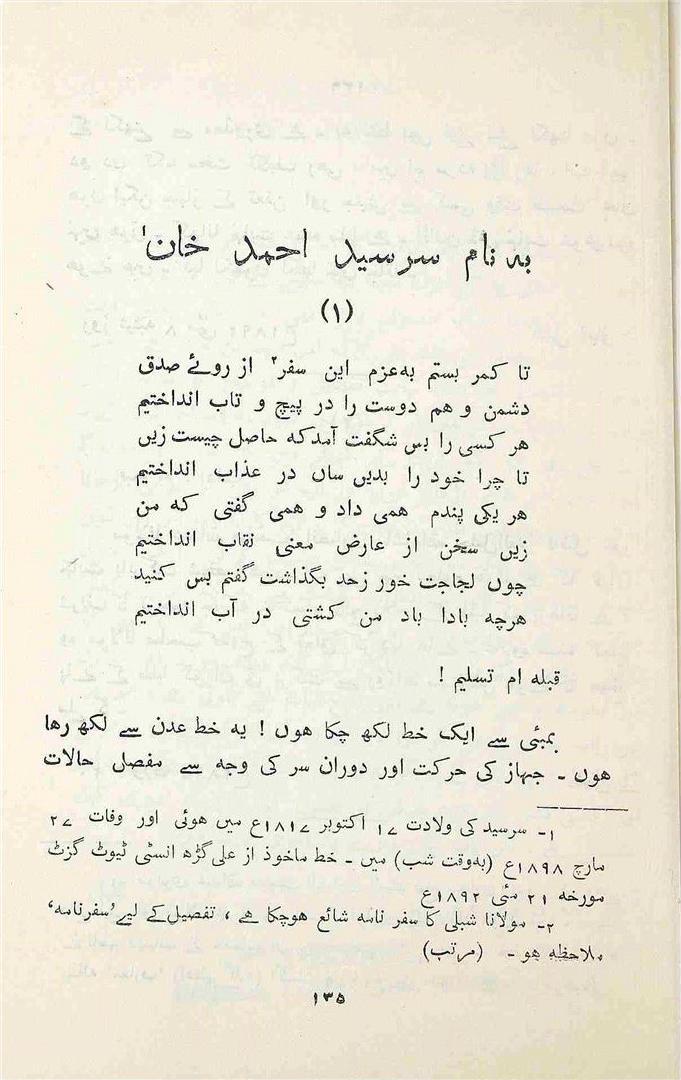 به نام سر سید احمد خان¹
(۱)
تا کمر بستم به‌عزم این سفر² از روئے صدق
دشمن و هم دوست را در پیچ و تاب انداختیم
هر کسی را بس شگفت آمدکه حاصل چیست زیں
تا چرا خود را بدیں ساں در عذاب انداختیم
هر یکی پندم همی داد و همی گفتی که من
زیں سخن از عارض معنی نقاب انداختیم
چوں لجاجت خور زحد بگذاشت گفتم بس کنید
هرچه بادا باد من کشتی در آب انداختیم
قبله ام تسلیم !
بمبئی سے ایک خط لکھ چکا هوں ! یه خط عدن سے لکھ رها
هوں ۔ جہاز کی حرکت اور دوران سر کی وجه سے مفصل حالات
۱۔ سرسید کی ولادت ۱۷ اکتوبر ۱۸۱۷ع میں هوئی اور وفات ۲۷
مارچ ۱۸۹۸ع (به‌وقت شب) میں ۔ خط ماخوذ از علی گڑھ انسٹی ٹیوٹ گزٹ
مورخه ۲۱ مئی ۱۸۹۲ع
۲۔ مولانا شبلی کا سفر نامه شائع هوچکا هے ، تفصیل کے لیے ’سفرنامه‘
ملاحظه هو ۔ (مرتب)
۱۳۵